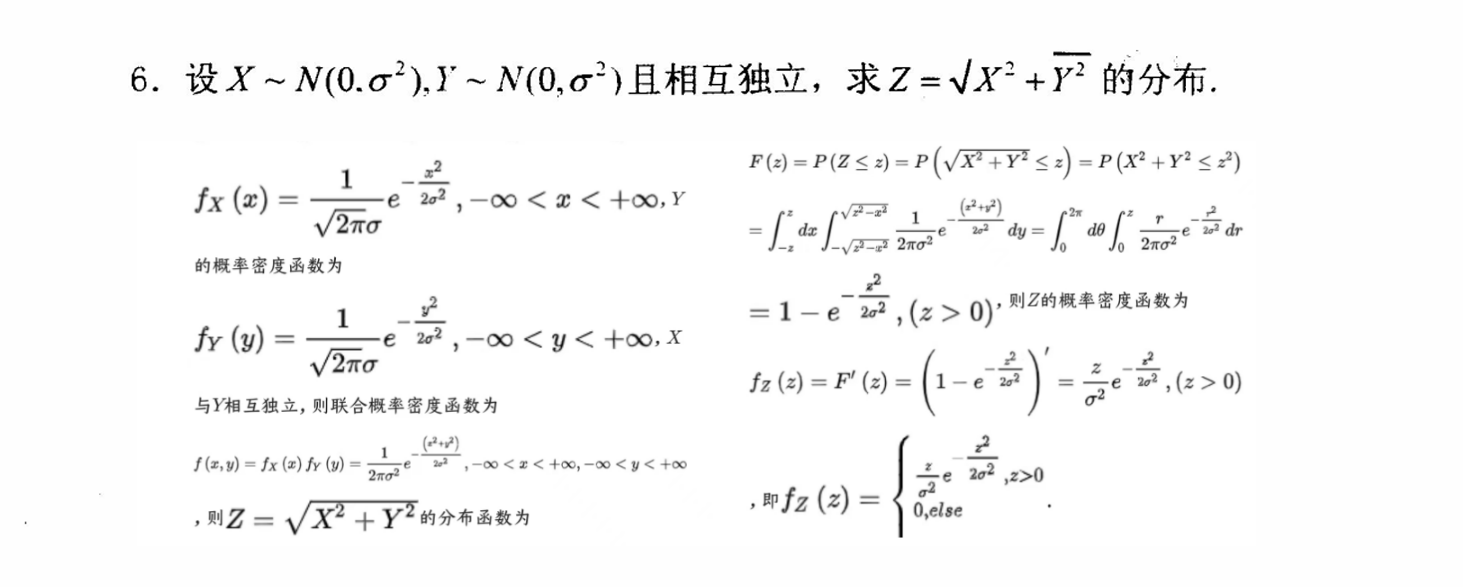 6. 设 X ~ N(0.σ²),Y ~ N(0,σ²)且相互独立，求 Z = √X² + Y² 的分布.
f_X (x) = \frac{1}{\sqrt{2π}σ} e^{-\frac{x²}{2σ²}}, -∞ < x < +∞, Y
的概率密度函数为
f_Y (y) = \frac{1}{\sqrt{2π}σ} e^{-\frac{y²}{2σ²}}, -∞ < y < +∞, X
与Y相互独立, 则联合概率密度函数为
f (x, y) = f_X (x) f_Y (y) = \frac{1}{2πσ²} e^{-\frac{(x²+y²)}{2σ²}}, -∞ < x < +∞, -∞ < y < +∞
, 则 Z = \sqrt{X² + Y²} 的分布函数为
F (z) = P (Z ≤ z) = P (\sqrt{X² + Y²} ≤ z) = P (X² + Y² ≤ z²)
= ∫_{-z}^{z} dx ∫_{-\sqrt{z²-x²}}^{\sqrt{z²-x²}} \frac{1}{2πσ²} e^{-\frac{(x²+y²)}{2σ²}} dy = ∫_0^{2π} dθ ∫_0^z \frac{r}{2πσ²} e^{-\frac{r²}{2σ²}} dr
= 1 - e^{-\frac{z²}{2σ²}}, (z > 0), 则Z的概率密度函数为
f_Z (z) = F' (z) = (1 - e^{-\frac{z²}{2σ²}})' = \frac{z}{σ²} e^{-\frac{z²}{2σ²}}, (z > 0)
, 即 f_Z (z) = { \frac{z}{σ²} e^{-\frac{z²}{2σ²}} ,z>0
0,else .